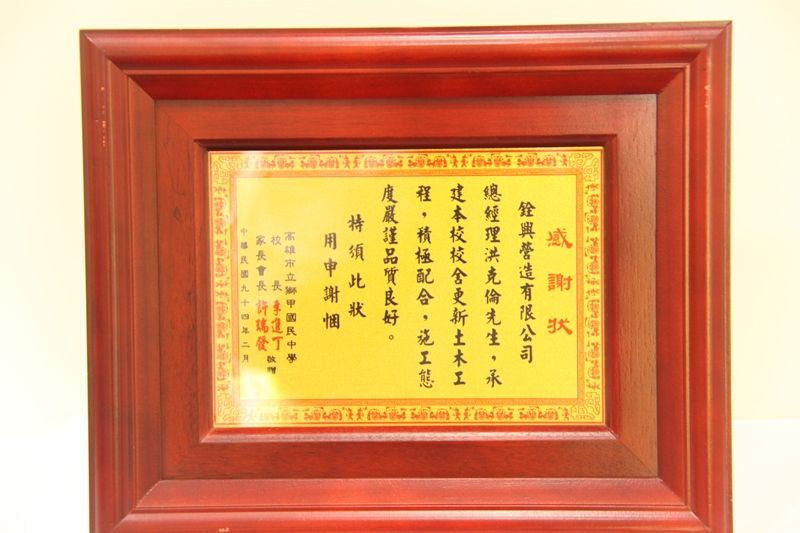 感謝狀
銓興營造有限公司
總經理洪克倫先生，承
建本校校舍更新土木工
程，積極配合，施工態
度嚴謹品質良好。
特頒此狀
用申謝悃
高雄市立獅甲國民中學
校長李進丁
家長會長許瑞發
敬贈
中華民國九十四年二月